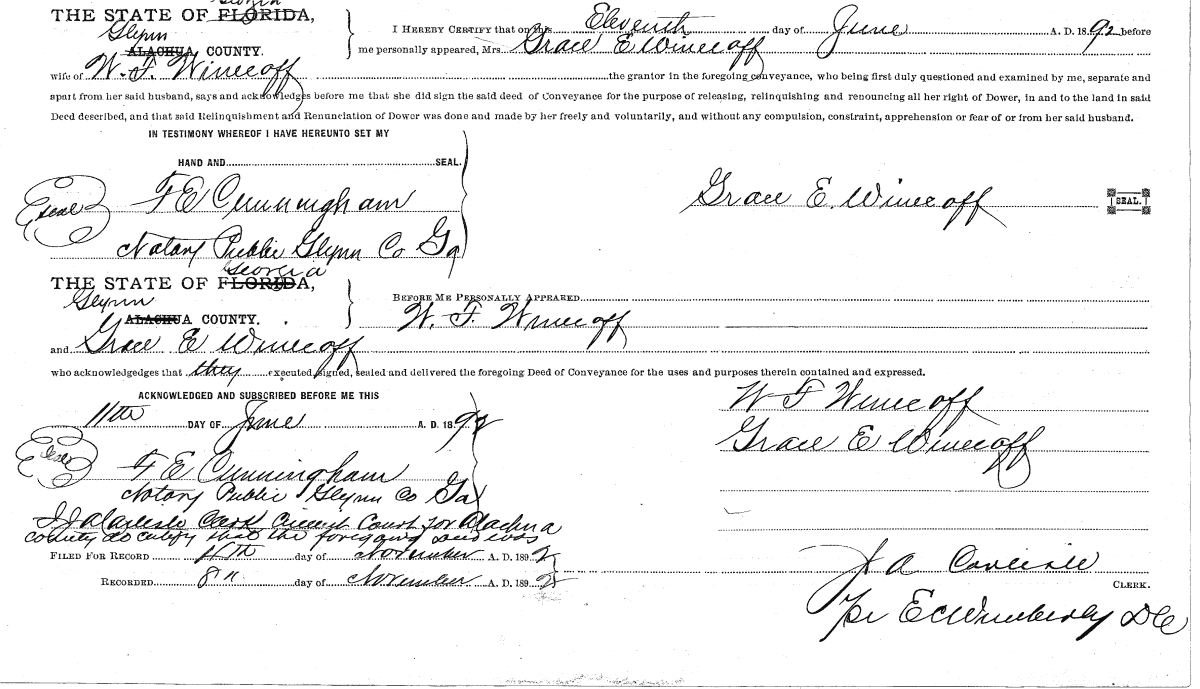 Georgia
THE STATE OF FLORIDA,
Glynn
ALACHUA COUNTY.
I HEREBY CERTIFY that on this Eleventh day of June A. D. 1892 before
me personally appeared, Mrs. Grace E Winecoff
wife of W. F. Winecoff the grantor in the foregoing conveyance, who being first duly questioned and examined by me, separate and
apart from her said husband, says and acknowledges before me that she did sign the said deed of Conveyance for the purpose of releasing, relinquishing and renouncing all her right of Dower, in and to the land in said
Deed described, and that said Relinquishment and Renunciation of Dower was done and made by her freely and voluntarily, and without any compulsion, constraint, apprehension or fear of or from her said husband.
IN TESTIMONY WHEREOF I HAVE HEREUNTO SET MY
HAND AND SEAL.
seal F E Cunningham
Grace E. Winecoff SEAL.
Notary Public Glynn Co Ga
Georgia
THE STATE OF FLORIDA,
Glynn
ALACHUA COUNTY.
BEFORE ME PERSONALLY APPEARED
W. F. Winecoff
and Grace E Winecoff
who acknowledgedges that they executed, signed, sealed and delivered the foregoing Deed of Conveyance for the uses and purposes therein contained and expressed.
ACKNOWLEDGED AND SUBSCRIBED BEFORE ME THIS
11th DAY OF June A. D. 1892
W F Winecoff
Grace E Winecoff
seal F E Cunningham
Notary Public Glynn Co Ga
I J A Carlisle Clerk Circuit Court for Alachua
county do certify that the foregoing deed was
FILED FOR RECORD day of November A. D. 1892
RECORDED 8th day of November A. D. 1892
J A Carlisle
CLERK.
Per E C Wimberly D C